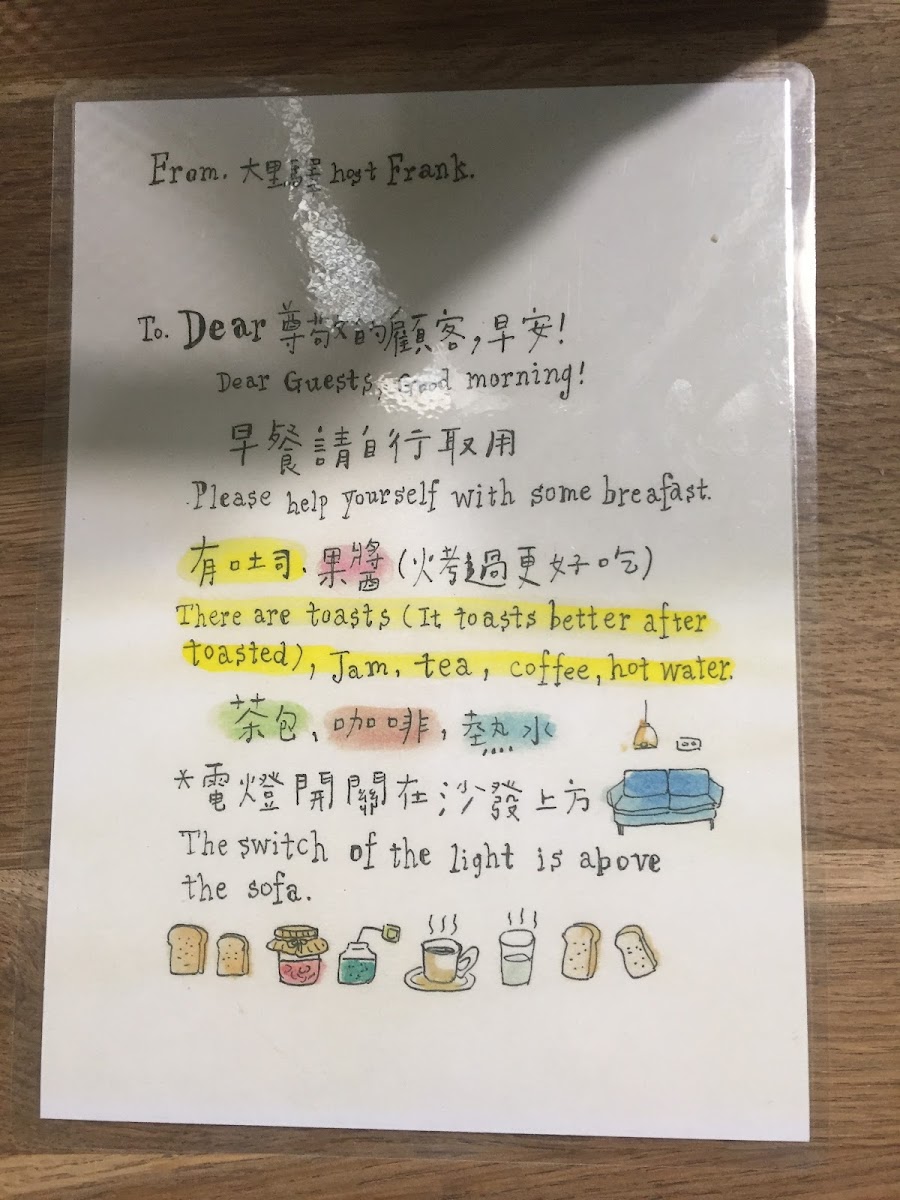 From. 大里驛 host Frank.
To. Dear 尊敬的顧客,早安!
Dear Guests, Good morning!
早餐請自行取用
Please help yourself with some breafast.
有吐司、果醬(火考過更好吃)
There are toasts (It toasts better after
toasted), Jam, tea, coffee, hot water.
茶包、咖啡, 熱水
*電燈開關在沙發上方
The switch of the light is above
the sofa.